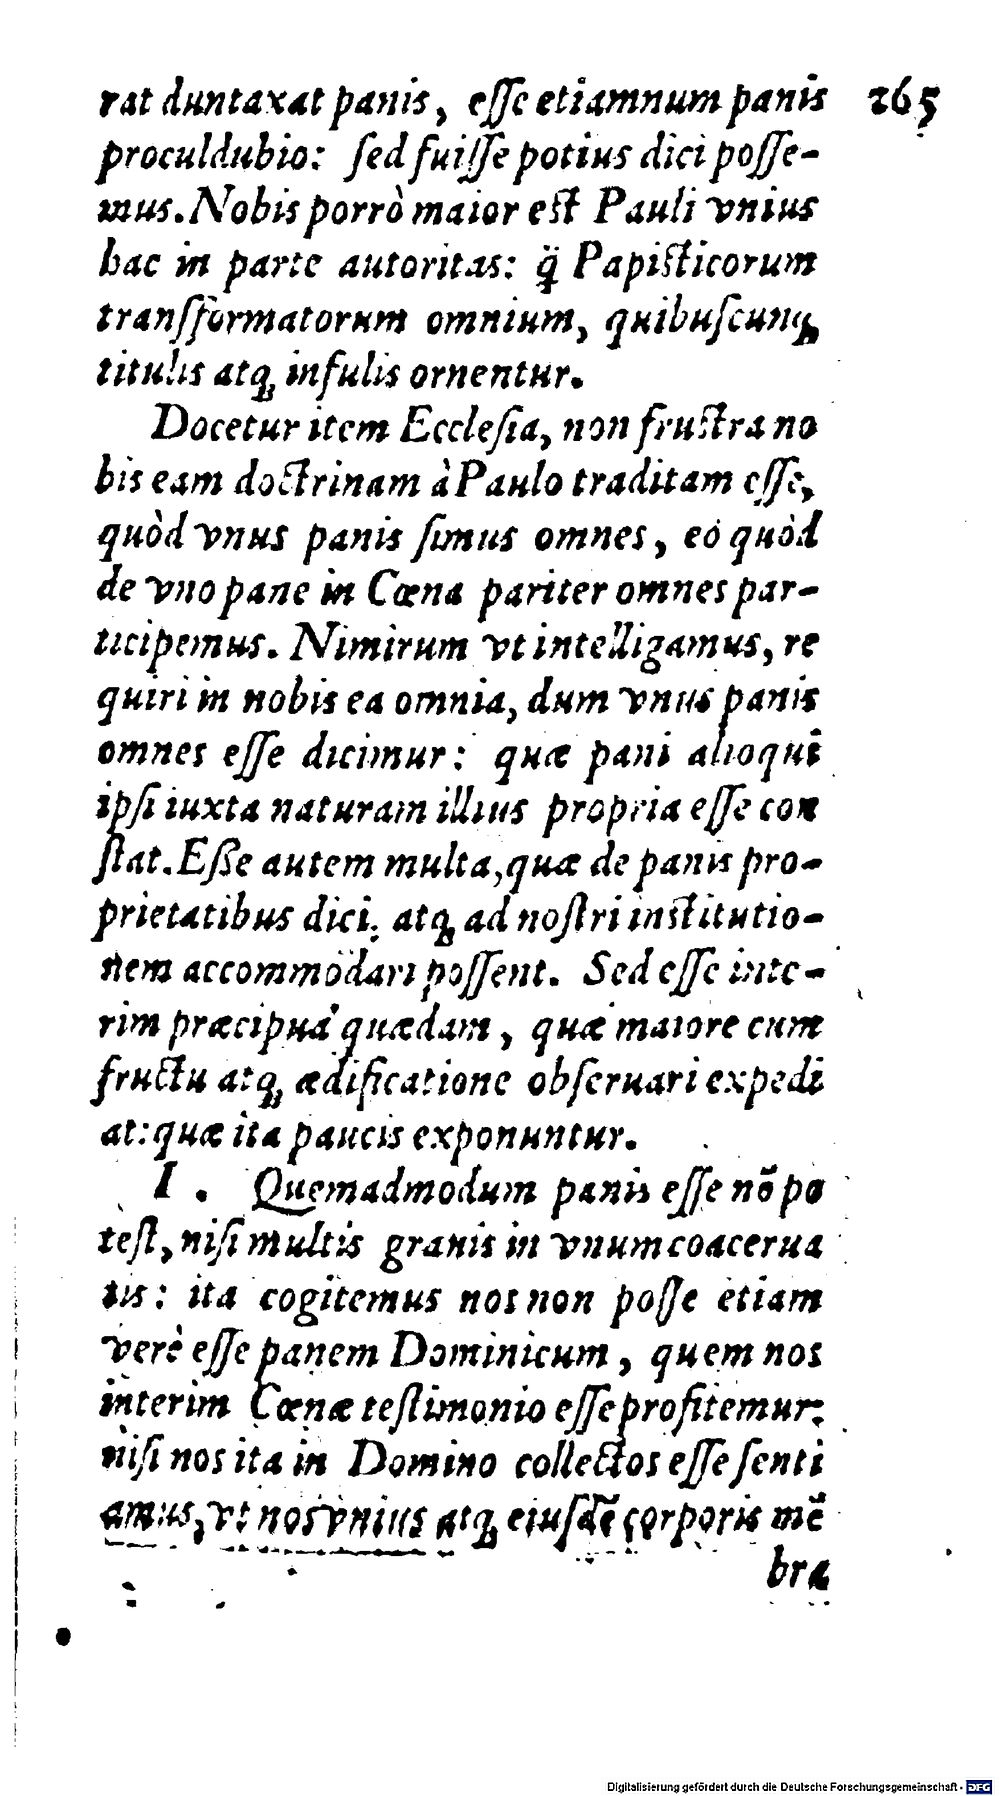 rat duntaxat panis, eſſe etiamnum panis 265
proculdubio: ſed fuiſſe potius dici poſſe-
mus. Nobis porrò maior eſt Pauli vnius
hac in parte autoritas: q̃ Papiſticorum
tranſformatorum omnium, quibuſcunq;
titulis atq; infulis ornentur.
Docetur item Eccleſia, non fruſtra no
bis eam doctrinam à Paulo traditam eſſe,
quòd vnus panis ſimus omnes, eò quòd
de vno pane in Cœna pariter omnes par-
ticipemus. Nimirum vt intelligamus, re
quiri in nobis ea omnia, dum vnus panis
omnes eſſe dicimur: quæ pani alioqui
ipſi iuxta naturam illius propria eſſe con
ſtat. Eße autem multa, quæ de panis pro-
prietatibus dici, atq; ad noſtri inſtitutio-
nem accommodari poſſent. Sed eſſe inte-
rim præcipua quædam, quæ maiore cum
fructu atq; ædificatione obſeruari expedi
at: quæ ita paucis exponuntur.
I. Quemadmodum panis eſſe nõ po
teſt, niſi multis granis in vnum coacerua
tis: ita cogitemus nos non poſſe etiam
verè eſſe panem Dominicum, quem nos
interim Cœnæ teſtimonio eſſe profitemur:
niſi nos ita in Domino collectos eſſe ſenti
amus, vt nos vnius atq; eiuſdẽ corporis mẽ
bra
Digitalisierung gefördert durch die Deutsche Forschungsgemeinschaft - DFG